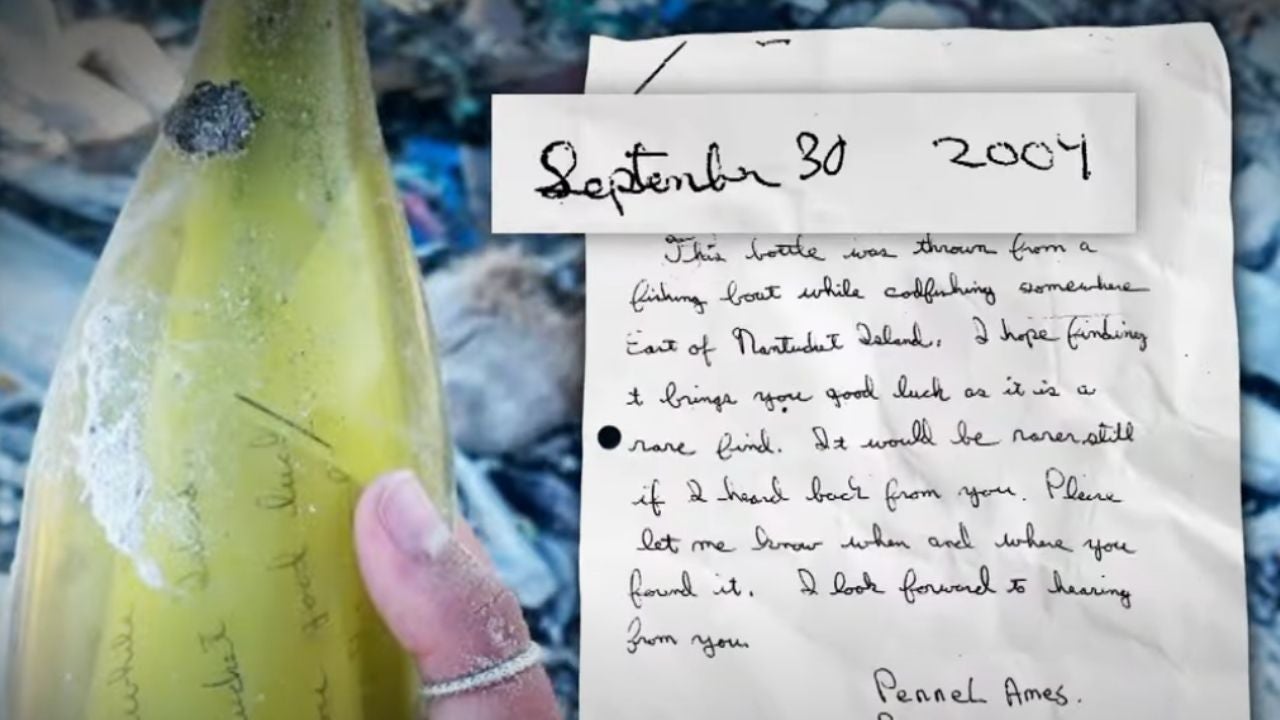 September 30 2004
This bottle was thrown from a
fishing boat while codfishing somewhere
East of Nantucket Island. I hope finding
t brings you good luck as it is a
rare find. It would be rarer still
if I heard back from you. Please
let me know when and where you
found it. I look forward to hearing
from you.
Pennel Ames.
while
ucket
good luck